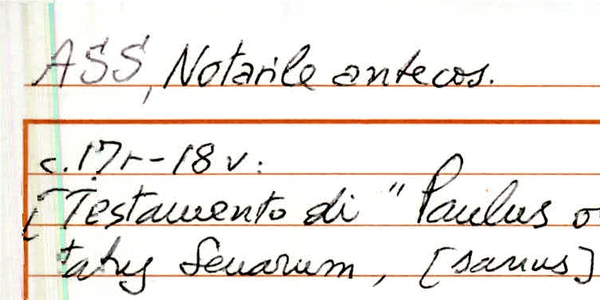 ASS, Notarile antecos.
c. 17r-18v:
[Testamento di "Paulus
Senarum, [sanus]